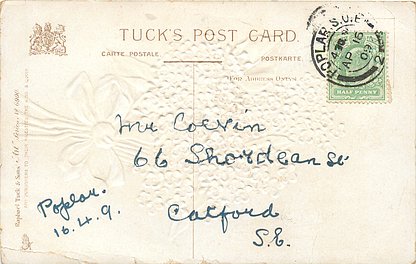 TUCK'S POST CARD.
CARTE POSTALE
POSTKARTE.
FOR ADDRESS ONLY.
POPLAR. S.O.E
AP 15
09
HALF PENNY
Raphael Tuck & Sons
Mr Colvin
66 Shordean St
Catford
S.E.
Poplar.
16.4.9.